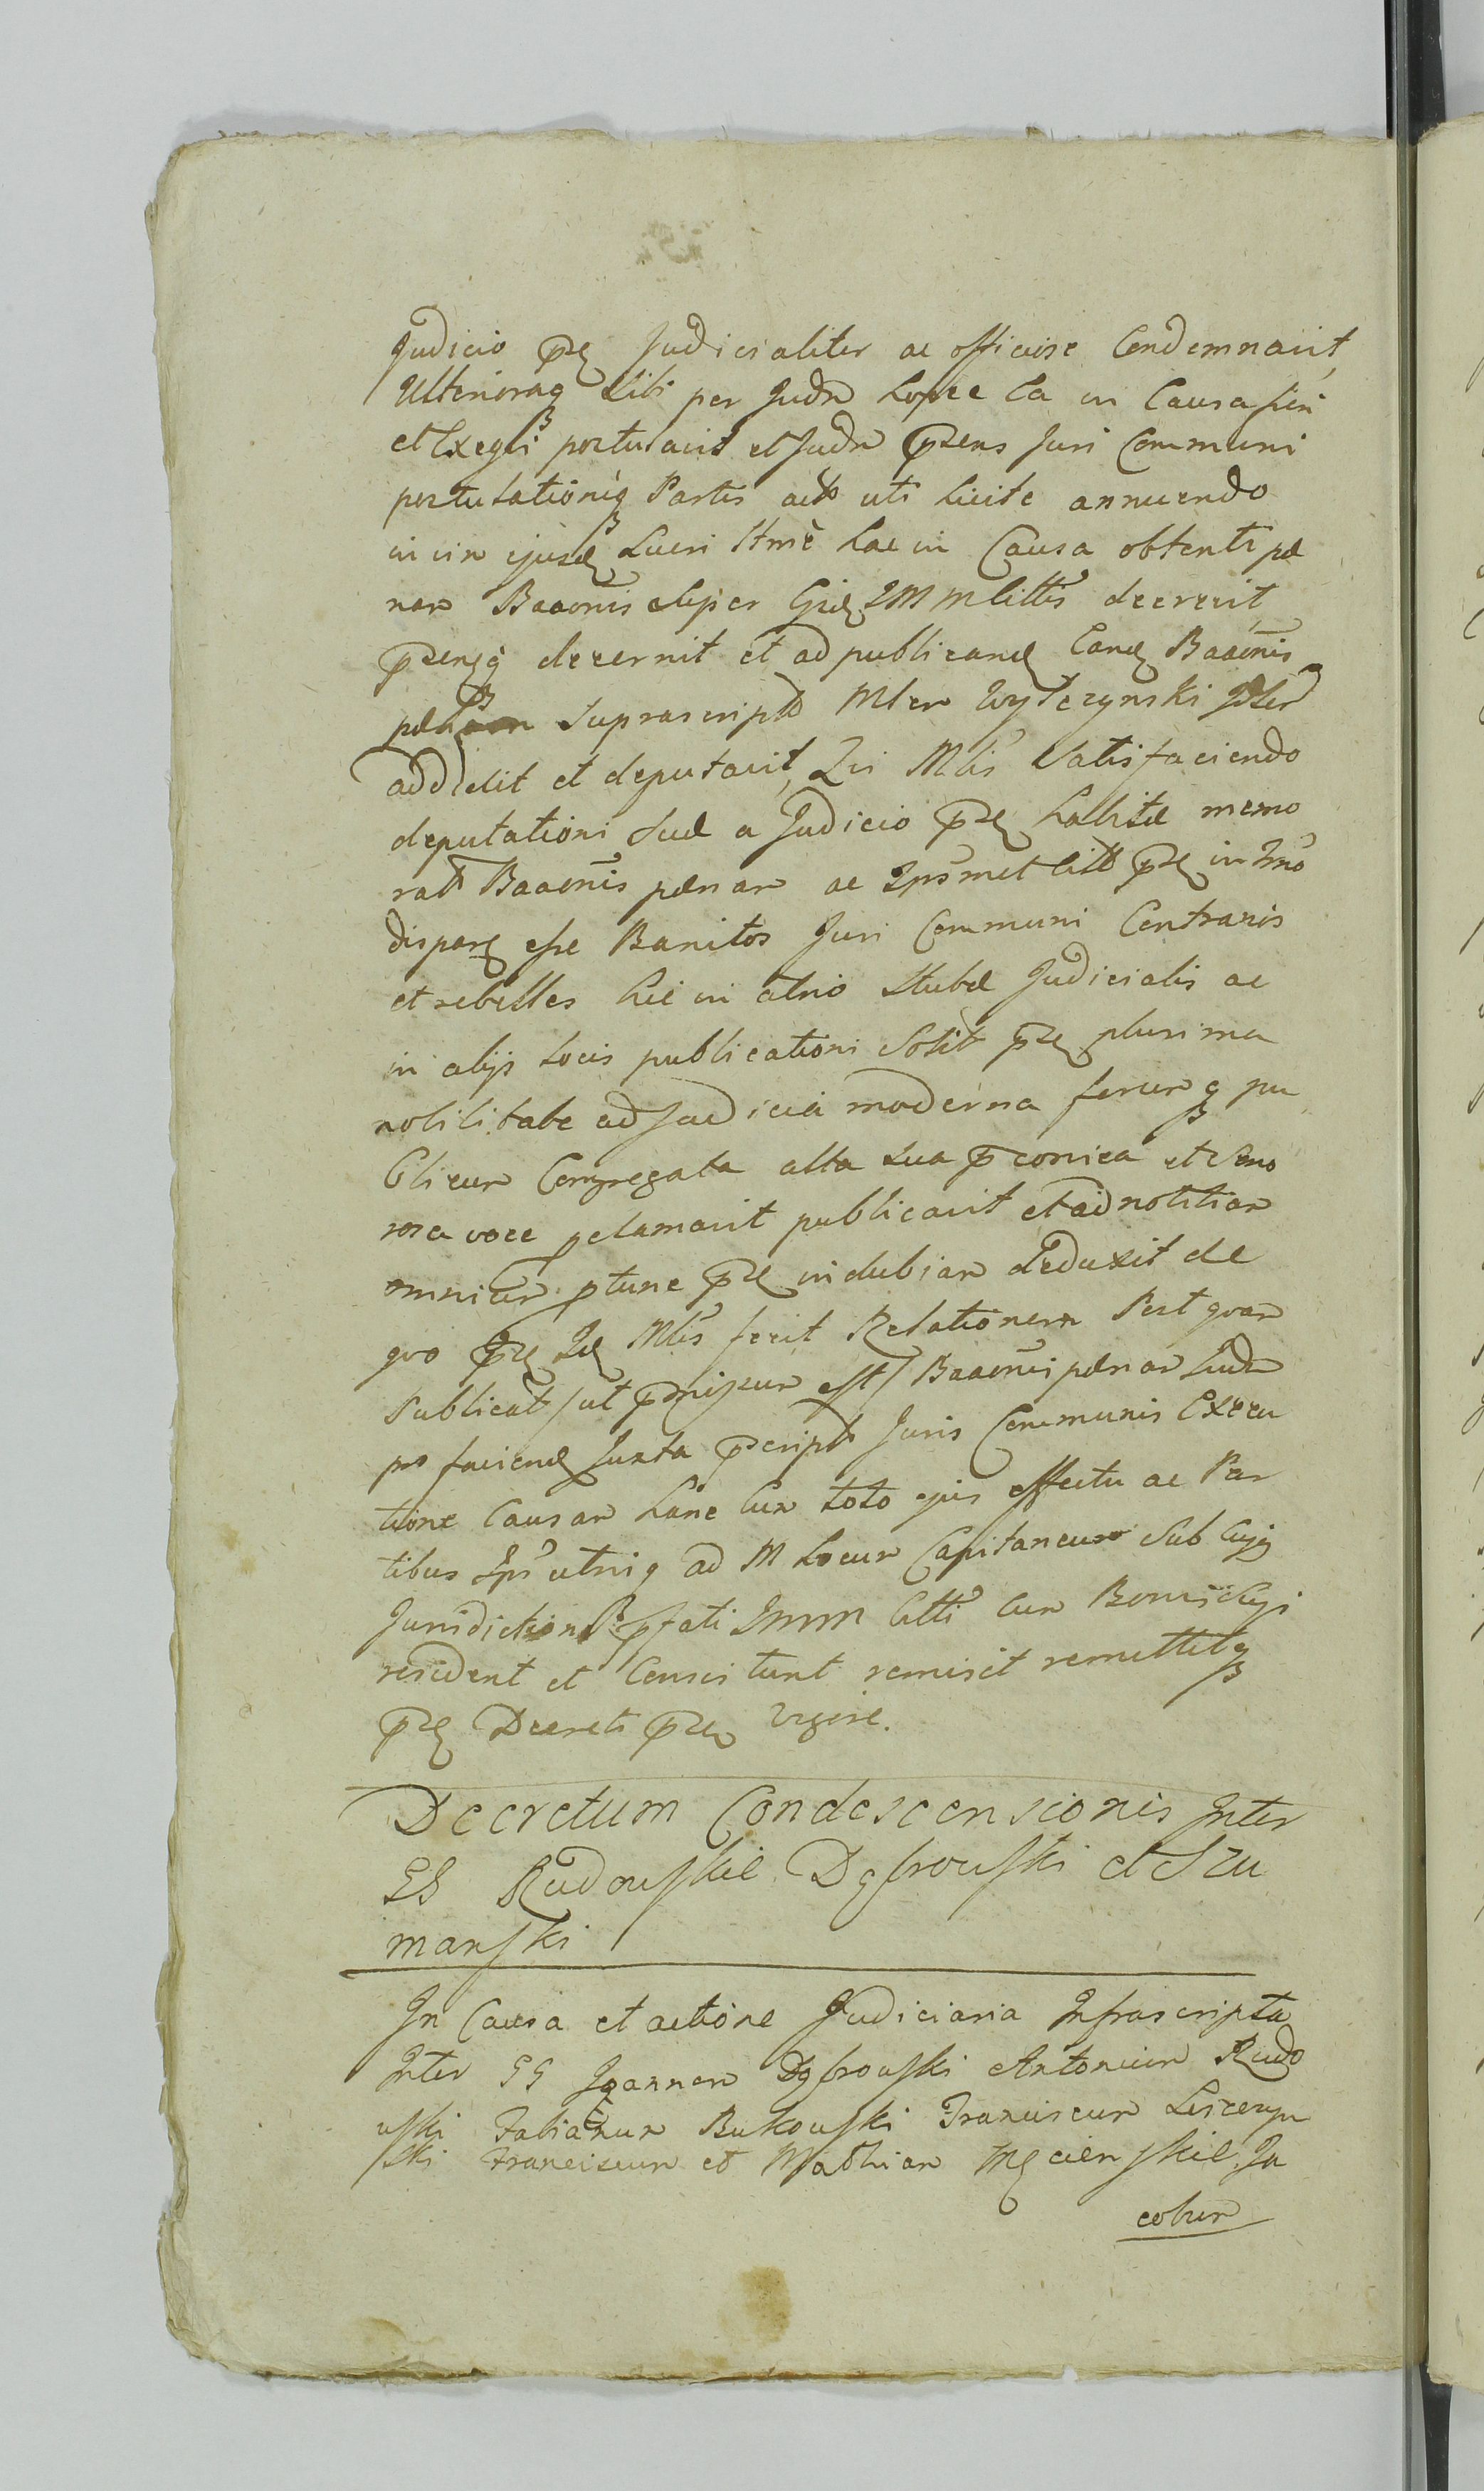 Judicio pse Judicialiter ac officiose Condemnavit,
Ulteriorag Sibi per Judm hopce ca in Causa fieri
et Exegui postulavit et Judm psens Juri Communi
postulationiq Partis act uti licite annuendo
in vim ejusd Lucri Hme hac in Causa obtenti pæ
nam Baaonis super Gid IMM litts decrevit
psensq decernit et ad publicand Eand Baaonis
pænam Suprascript Mlem Wylezynski Jstler
addidit et deputavit, Qui Mlis Satisfaciendo
deputationi Suæ a Judicio pse habitæ memo
rat Baaonis pænam ac Ipsmet citt pse in Imo
dispare esse Banitos Juri Communi Contrarios
et rebelles hic in atrio Stubæ Judicialis ac
in alijs Locis publicationi Solit pse plurima
nobilitate ad Judicia moderna ferumq pu
blicum Congregata alta Sua pconica et Sono
rosa voce pclamavit publicavit et ad notitiam
omnium ptunc pse indubiam deduxit de
quo pse Id Mlis fecit Relationem Post quam
Publicat /ut pmissum est/ Baaonis pænam Judm
pns faciend Juxta pscript Juris Communis Execu
tione Causam hanc Cum toto ejus effectu ac Par
tibus Ips utriq ad M Locum Capitaneum Sub cujg
Jurisdictione pfati IMM Citti cum Bonis Cuji
resident et Consistunt remisit remittitq
pse Decreti psen vigore.
Decretum Condescensionis Inter
GG Rudowskie Dąbrowski et Szu
manski
In Causa et actione Judiciaria Infrascripta
Inter GG Joannem Dąbrowski Antonium Rudo
wski Fabianum Bukowski Franciscum Lisczyn
ski Franciscum et Mathiam Męcienskie Ja
cobum